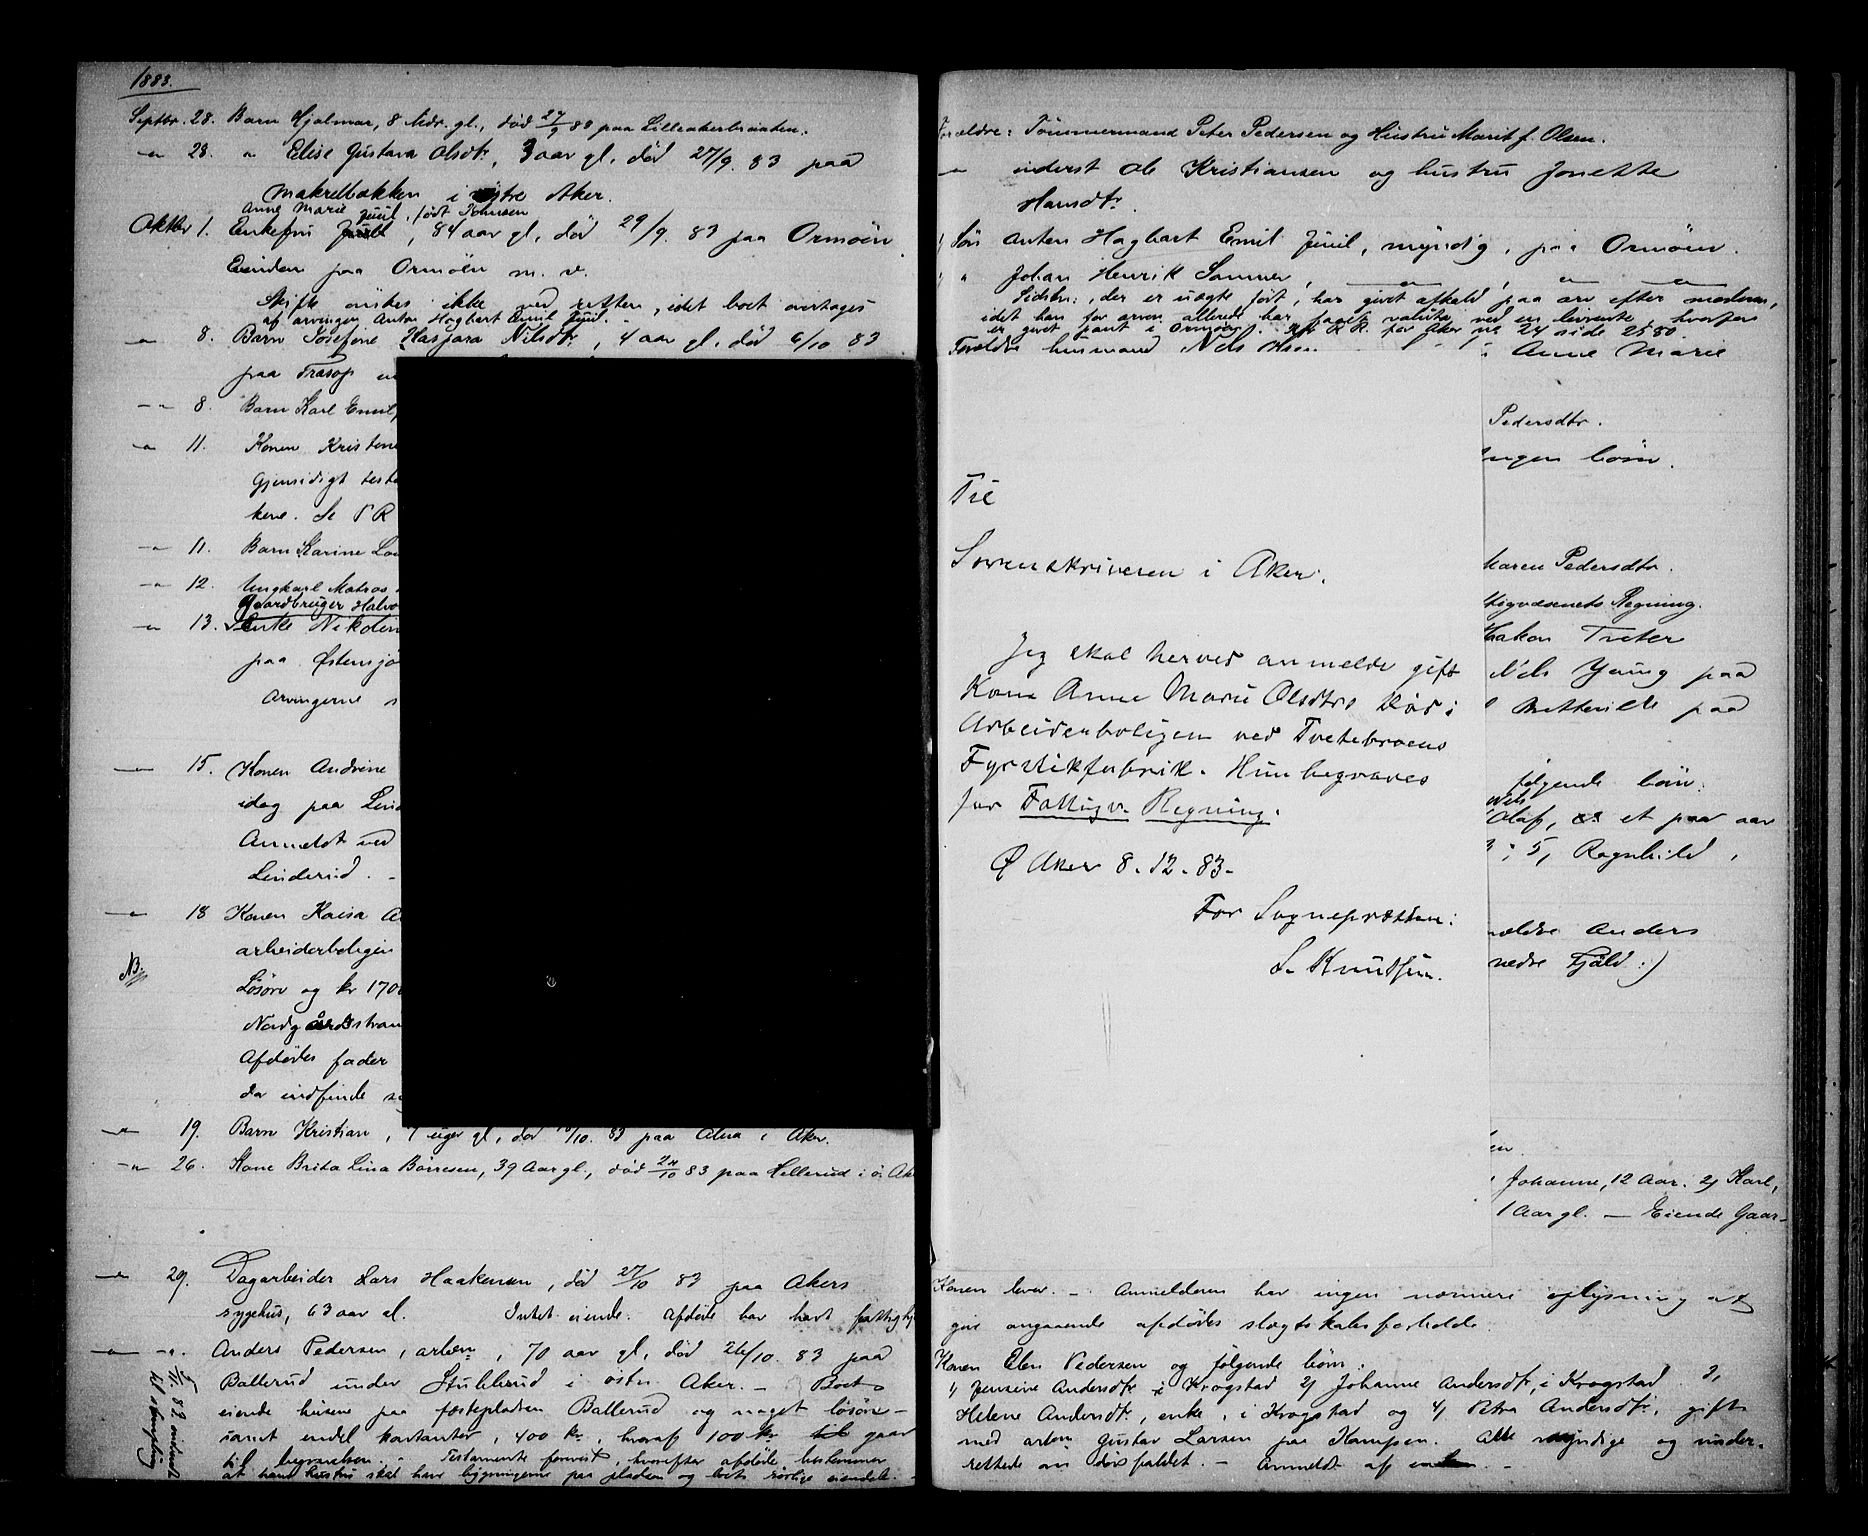 1883.
Septbr. 28. Barn Hjalmar, 8 Mdr. gl., død 27/9 83 paa Lilleakerbraaten.
— " — 28. " Elise Gustava Olsdtr., 3 aar gl., død 27/9. 83 paa
Makrelbækken i østre Aker.
Anne Marie Juul, født Tønnesen
Oktbr 1. Enkefru, 84 aar gl., død 29/9. 83 paa Ormøen
Eiendom paa Ormøen m. v.
Skifte ønskes ikke ved retten, idet boet overtages
af arvingen Anton Hagbart Emil Juul. —
— " — 8. Barn Josefine Kaspara Nilsdtr., 4 aar gl., død 6/10 83
paa Træsop
— " — 8. Barn Karl Emil,
— " — 11. Konen Kristen
Gjensidigt test
kene. Se P R
— " — 11. Barn Karine Lo
— " — 12. Ungkarl Matros
Gaardbruger Halvo
— " — 13. Enke Nikolin
paa Østensjø
Arvingerne
— " — 15. Konen Andrine
idag paa Lind
Anmeldt ved
Linderud. —
— " — 18 Konen Kaisa A
arbeiderboligen
NB. Løsøre og kr 1700
Nordgårdstran
Afdødes fader
da indfinde s
— " — 19. Barn Kristian, 7 uger gl., død /10. 83 paa Alna i Aker.
— " — 26. Kone Brita Lina Børresen, 39 Aar gl., død 24/10 83 paa Hellerud i ø. Ak
— " — 29. Dagarbeider Lars Haakensen, død 27/10 83 paa Akers
sygehus, 63 aar gl. Intet eiende. Afdøde har havt fattighj
— " — " . Anders Pedersen, arbm, 70 aar gl., død 26/10. 83 paa
Ballerud under Stubberud i østre Aker. — Boet
eiende husene paa fæstepladsen Ballerud og noget løsøre —
samt endel kontanter, 400 kr, hvoraf 100 kr gaar
til begravelsen. — Testamente forevist, hvorefter afdøde bestemmer
at hans hustru skal have bygningerne paa pladsen og boets rørlige eiendele. —
Forældre: Tømmermand Peter Pedersen og Hustru Maret f. Olsen.
— " — inderst Ole Kristiansen og hustru Jonette
Hansdtr.
1) Søn Anton Hagbart Emil Juul, myndig, paa Ormøen.
" Johan Henrik Sommer, — " — , " — " —
Sidstn:, der er uægte født, har givet afkald paa arv efter moderen,
idet han for arven allerede har faaet valuta ved en livrente, hvorfor
er givet pant i Ormøen. R. for Aker No 24 side 2580
Forældre husmand Nils Olsen Anne Marie
Pedersdtr.
Ingen børn.
Karen Pedersdtr.
ttigvæsenets Regning.
Hakon Tveter
Nils Young paa
paa
følgende børn:
Nils
Olaf, et par aar
; 5, Ragnhild,
rældre Anders
nedre Fjæld:)
en.
Johanne, 12 Aar. 2) Karl,
1 Aar gl. — Eiende Gaar-
Til
Sorenskriveren i Aker.
Jeg skal herved anmelde gift
Kone Anne Marie Olsdtrs Død i
Arbeiderboligen ved Tvetebroens
Fyrstikfabrik. Hun begraves
for Fattigv. Regning.
Ø Aker 8.12.83.
For Sognepræsten:
L. Knudsen.
Konen lever. — Anmelderen har ingen nærmere oplysning at
give angaaende afdødes slægtskabsforholde.
Konen Elen Pedersen og følgende børn:
1) Jensine Andersdtr i Krogstad 2) Johanne Andersdtr, i Krogstad 3,
Helene Andersdtr., enke, i Krogstad og 4) Petra Andersdtr., gift
med arbm Gustav Larsen paa Kampen. Alle myndige og under-
rettede om dødsfaldet. — Anmeldt af enken. —